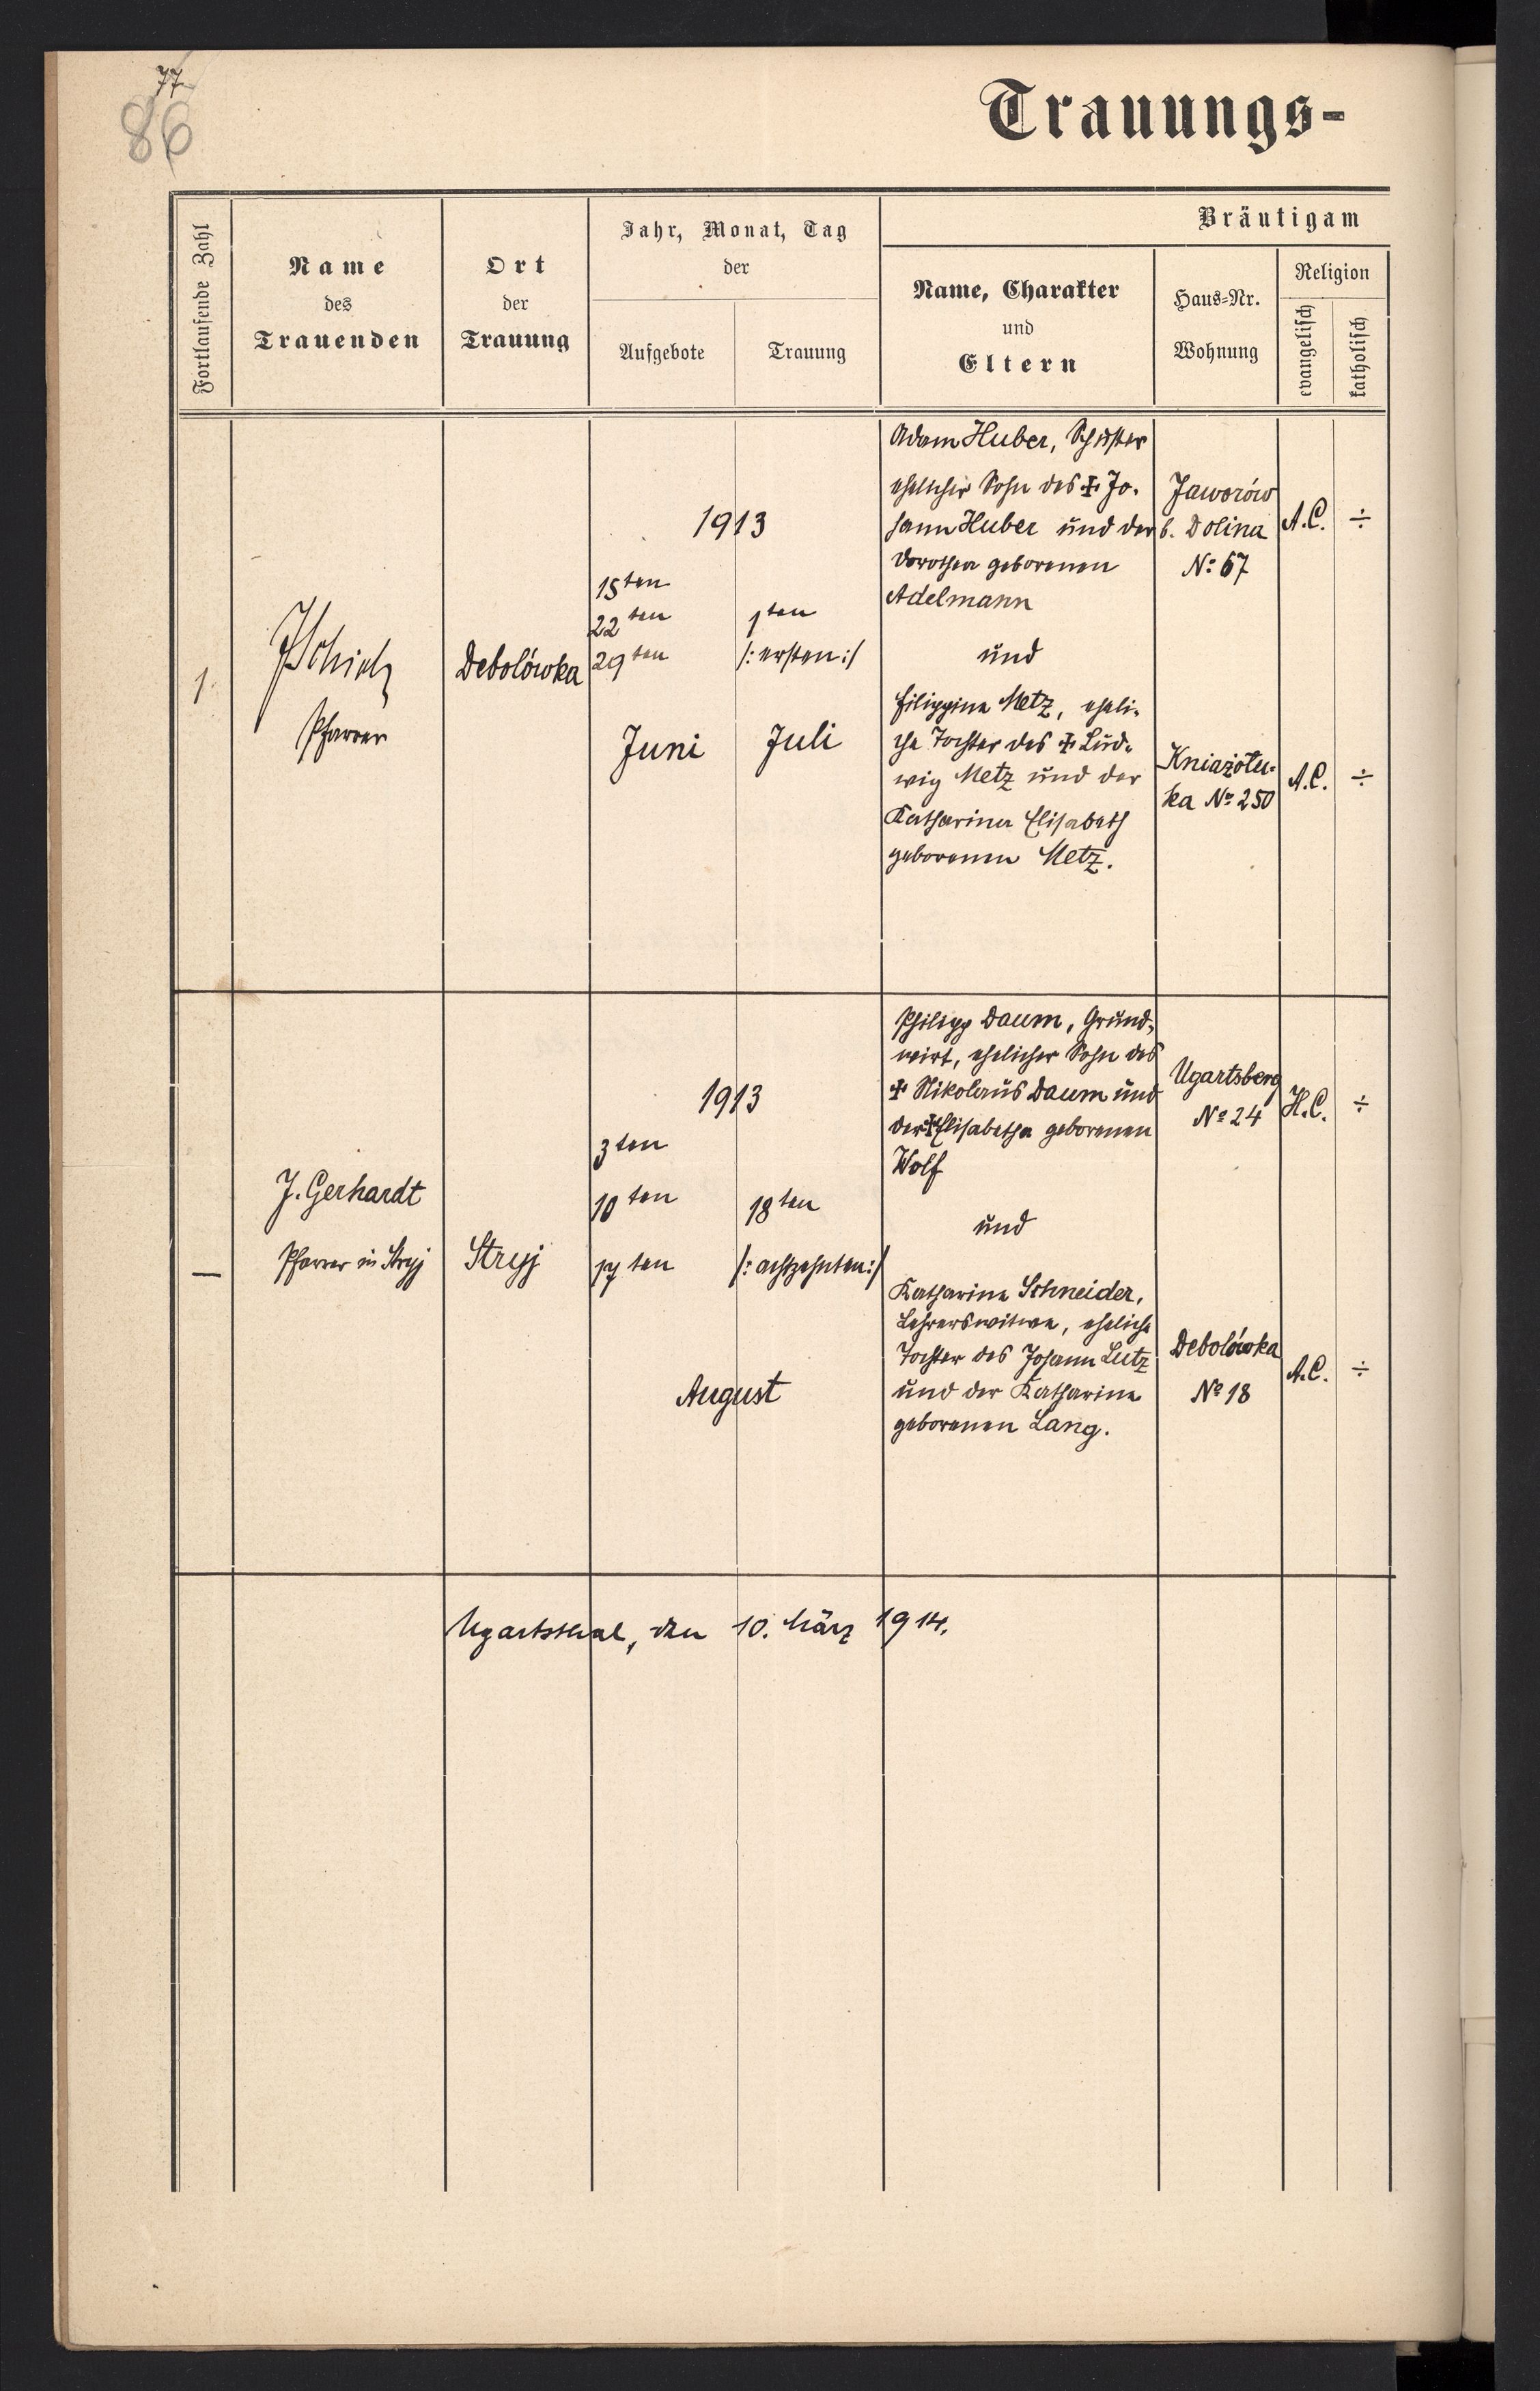 77
86
Trauungs-
Fortlaufende Zahl
Name
des
Trauenden
Ort
der
Trauung
Jahr, Monat, Tag
der
Aufgebote
Trauung
Bräutigam
Name, Charakter
und
Eltern
Haus-Nr.
Wohnung
Religion
evangelisch
katholisch
1.
Pfarrer
Debolówka
1913
15ten
22ten
29ten
Juni
1ten
/: ersten :/
Juli
Adam Huber, Schuster
ehelicher Sohn des ☩ Jo-
hann Huber und der
Dorothea geborenen
Adelmann
und
Filippina Metz, eheli-
che Tochter des ☩ Lud-
wig Metz und der
Katharina Elisabeth
geborenen Metz.
Jaworów
b. Dolina
No: 67
A.C. ÷
Kniazołu-
ka No 250
A.C. ÷
—
J. Gerhardt
Pfarrer in Stryj
Stryj
1913
3ten
10ten
17ten
18ten
/: achtzehnten :/
August
Philipp Daum, Grund-
wirt, ehelicher Sohn des
☩ Nikolaus Daum und
der ☩ Elisabetha geborenen
Wolf
und
Katharina Schneider,
Lehrerswitwe, eheliche
Tochter des Johann Lutz
und der Katharina
geborenen Lang.
Ugartsberg
No 24
H.C. ÷
Debolówka
No 18
A.C. ÷
Ugartsthal, den 10. März 1914.